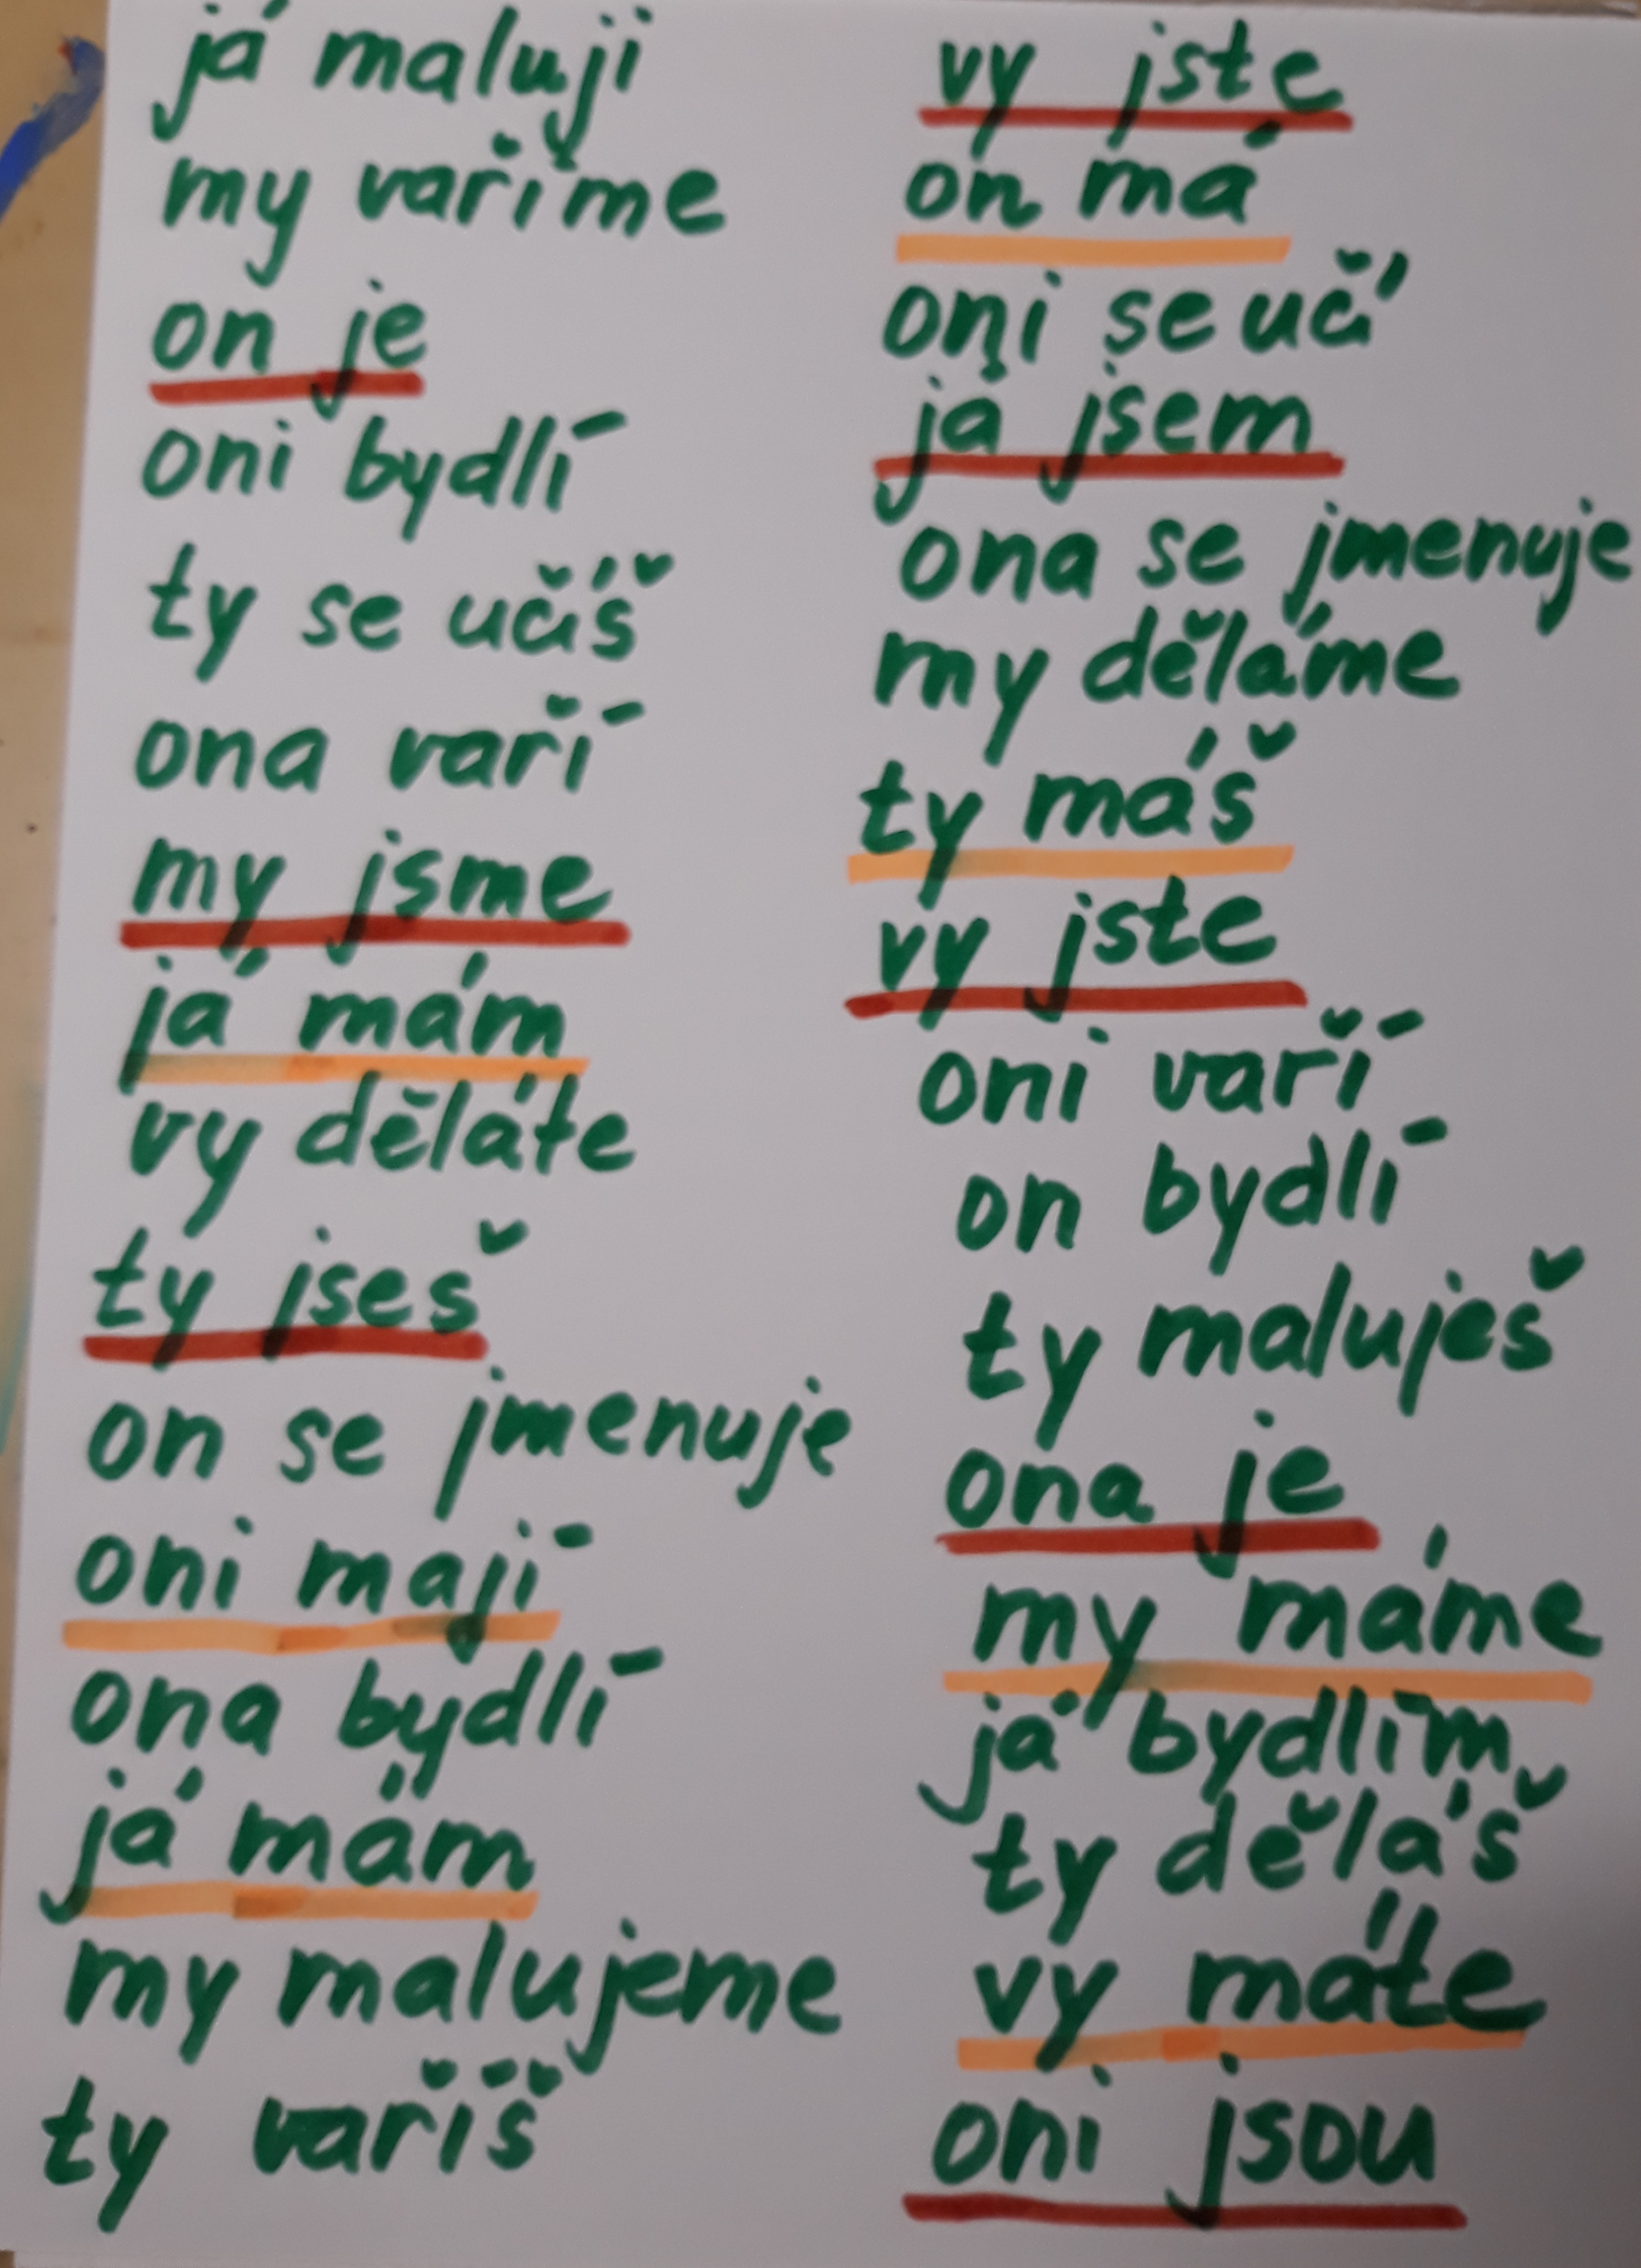 já maluji
my vaříme
on je
oni bydlí
ty se učíš
ona vaří
my jsme
já mám
vy děláte
ty jseš
on se jmenuje
oni mají
ona bydlí
já mám
my malujeme
ty vaříš
vy jste
on má
oni se učí
já jsem
ona se jmenuje
my děláme
ty máš
vy jste
oni vaří
on bydlí
ty maluješ
ona je
my máme
já bydlím
ty děláš
vy máte
oni jsou